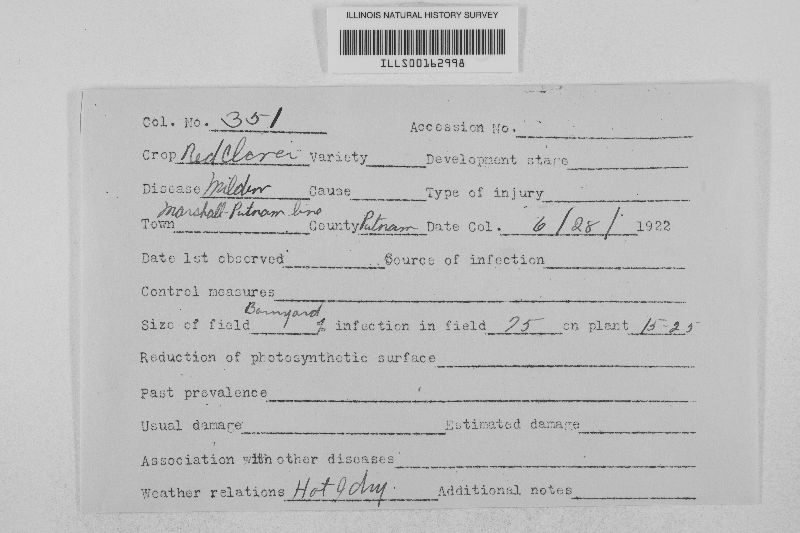 ILLINOIS NATURAL HISTORY SURVEY
ILLS00162998
Col. No. 351 Accession No.
Crop Red Clover Variety Development stage
Disease Mildew Cause Type of injury
Marshall-Putnam line
Town County Putnam Date Col. 6/28/ 1922
Date 1st observed Source of infection
Control measures
Size of field Barnyard % infection in field 75 on plant 15-25
Reduction of photosynthetic surface
Past prevalence
Usual damage Estimated damage
Association with other diseases
Weather relations Hot & dry. Additional notes